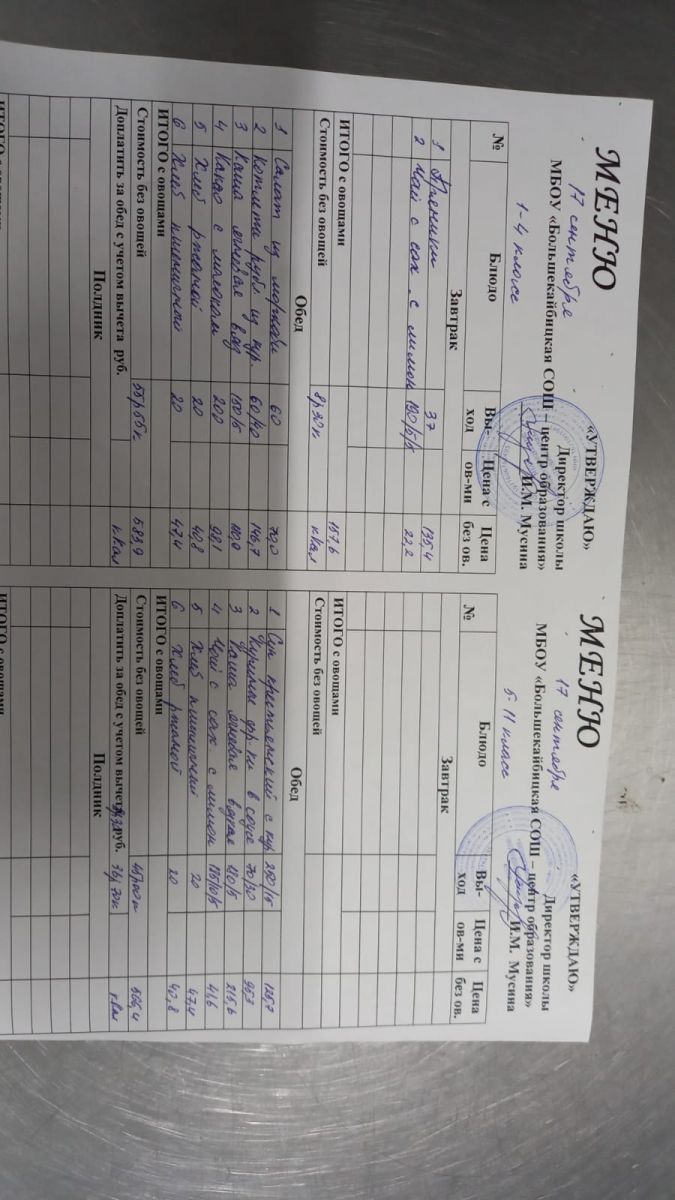 «УТВЕРЖДАЮ»
Директор школы
МБОУ «Большекайбицкая СОШ – центр образования»
И.М. Мусина
МЕНЮ
17 сентября
1-4 класс
№ Блюдо Вы-ход Цена с ов-ми Цена без ов.
Завтрак
1 Пряники 37 135,4
2 Чай с сах. с лимон 190/5/5 22,2
ИТОГО с овощами 157,6
Стоимость без овощей 8р30к ккал
Обед
1 Салат из моркови 60 70,0
2 Котлета рубл из кур. 60/40 146,7
3 Каша ячневая вяз 150/5
4 Какао с молоком 200
5 Хлеб ржаной 20 40,8
6 Хлеб пшеничный 20 47,4
ИТОГО с овощами
Стоимость без овощей 583,9
Доплатить за обед с учетом вычета руб. ккал
Полдник
ИТОГО с овощами
«УТВЕРЖДАЮ»
Директор школы
МБОУ «Большекайбицкая СОШ – центр образования»
И.М. Мусина
МЕНЮ
17 сентября
5-11 класс
№ Блюдо Вы-ход Цена с ов-ми Цена без ов.
Завтрак
ИТОГО с овощами
Стоимость без овощей
Обед
1 Суп крестьянский с кур 250/15 125,7
2 в соусе 70/30 95,3
3 Каша ячневая вязкая 210/5 215,6
4 Чай с сах с лимон 41,6
5 Хлеб пшеничный 20 47,4
6 Хлеб ржаной 20 40,8
ИТОГО с овощами
Стоимость без овощей
Доплатить за обед с учетом вычета руб. 36р70к ккал
Полдник
ИТОГО с овощами